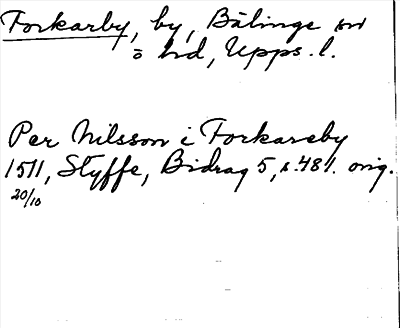 Forkarby, by, Bälinge sn
o hd, Upps. l.
Per Nilsson i Forkareby
1511, Styffe, Bidrag 5, s. 481. orig.
20/10